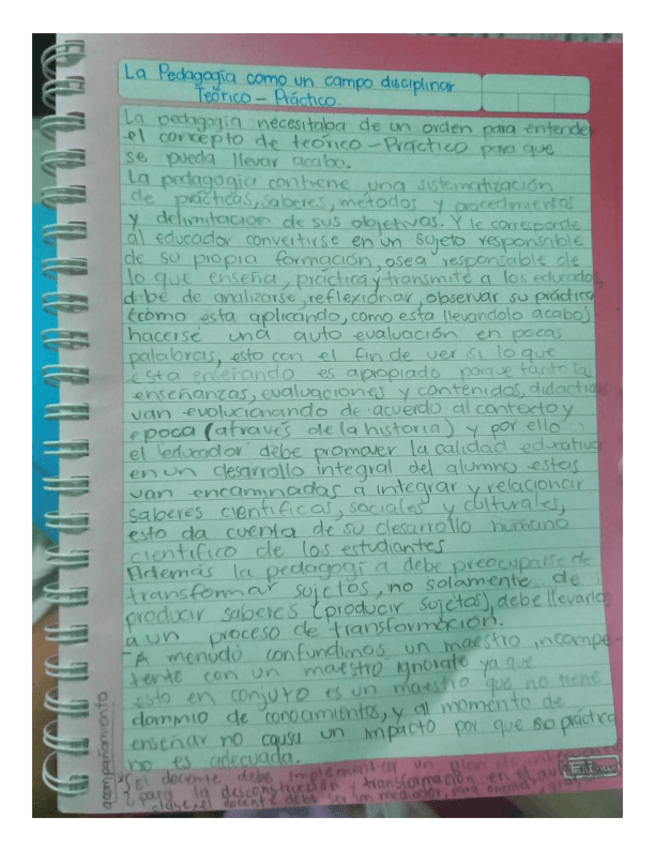 La Pedagogía como un campo disciplinar
Teórico - Práctico.
La pedagogía necesitaba de un orden para entender
el concepto de teórico - Practico para que
se pueda llevar acabo.
La pedagogía contiene una sistematización
de prácticas, saberes, métodos y procedimientos
y delimitación de sus objetivos. Y le corresponde
al educador convertirse en un sujeto responsable
de su propia formación, osea responsable de
lo que enseña, práctica y transmite a los educados,
debe de analizarse, reflexionar, observar su práctica
(cómo esta aplicando, como esta llevandolo acabo)
hacerse una auto evaluación en pocas
palabras, esto con el fin de ver si lo que
esta enseñando es apropiado porque tanto las
enseñanzas, evaluaciones y contenidos, didacticas
van evolucionando de acuerdo al contexto y
epoca (através de la historia) y por ello
el "educador" debe promover la calidad educativa
en un desarrollo integral del alumno estas
van encaminadas a integrar y relacionar
saberes científicos, sociales y culturales,
esto da cuenta de su desarrollo humano
científico de los estudiantes
Además la pedagogía debe preocuparse de
transformar sujetos, no solamente de
producir saberes (producir sujetos), debe llevarlos
a un proceso de transformación.
- A menudo confundimos un maestro incompe-
tente con un maestro ignorate ya que
esto en conjuto es un maestro que no tiene
dommio de conocamientos, y al momento de
enseñar no causa un impacto por que su práctica
no es adecuada.
acompañamiento
el docente debe implementar un plan de
para la desconstrucción y transformación en el aula
clase, el docente debe ser un mediador, para